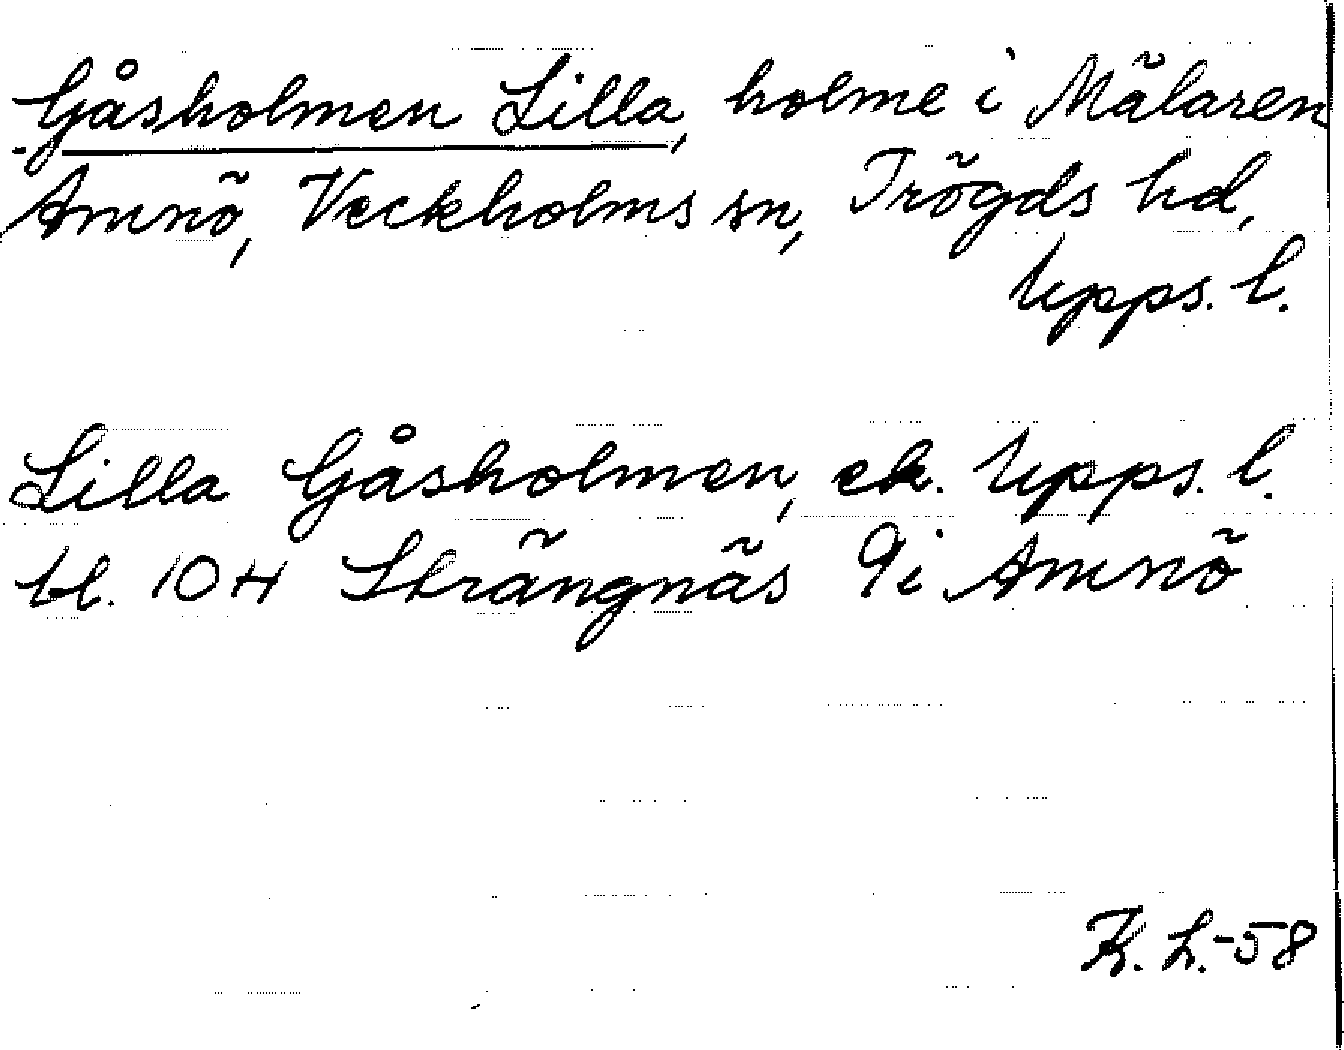 Gåsholmen Lilla, holme i Mälaren
Amnö, Veckholms sn, Trögds hd,
Upps. l.
Lilla Gåsholmen, ek. Upps. l.
bl. 104 Strängnäs 9i Amnö
K. L.-58